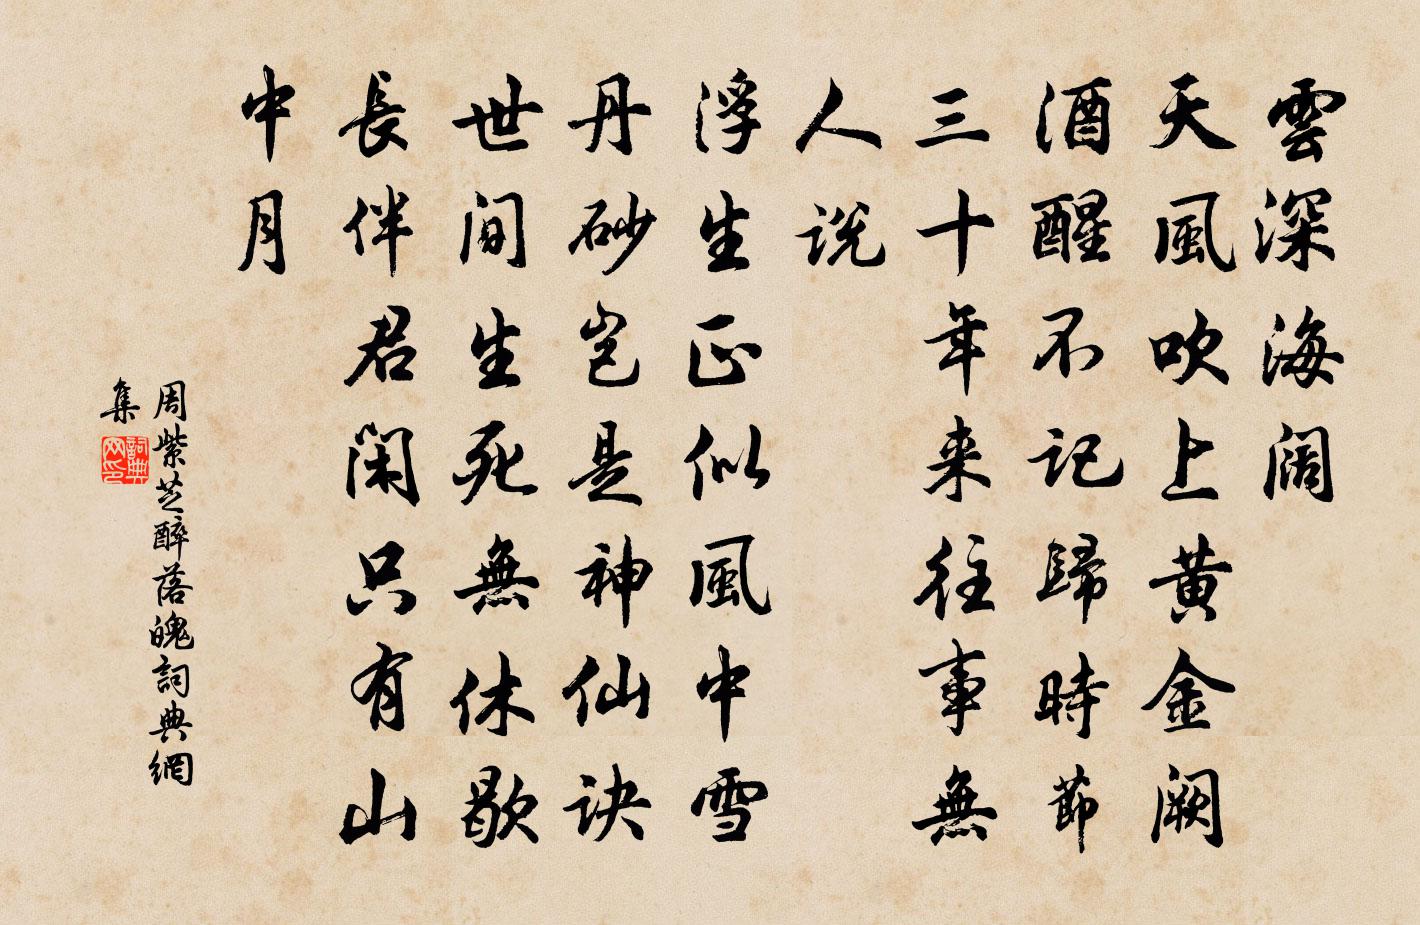 雲深海阔
天風吹上黄金阙
酒醒不记歸時節
三十年来往事無
人说
浮生正似風中雪
丹砂岂是神仙诀
世间生死無休歇
長伴君闲只有山
中月
周紫芝醉落魄詞典網
集
詞典网印